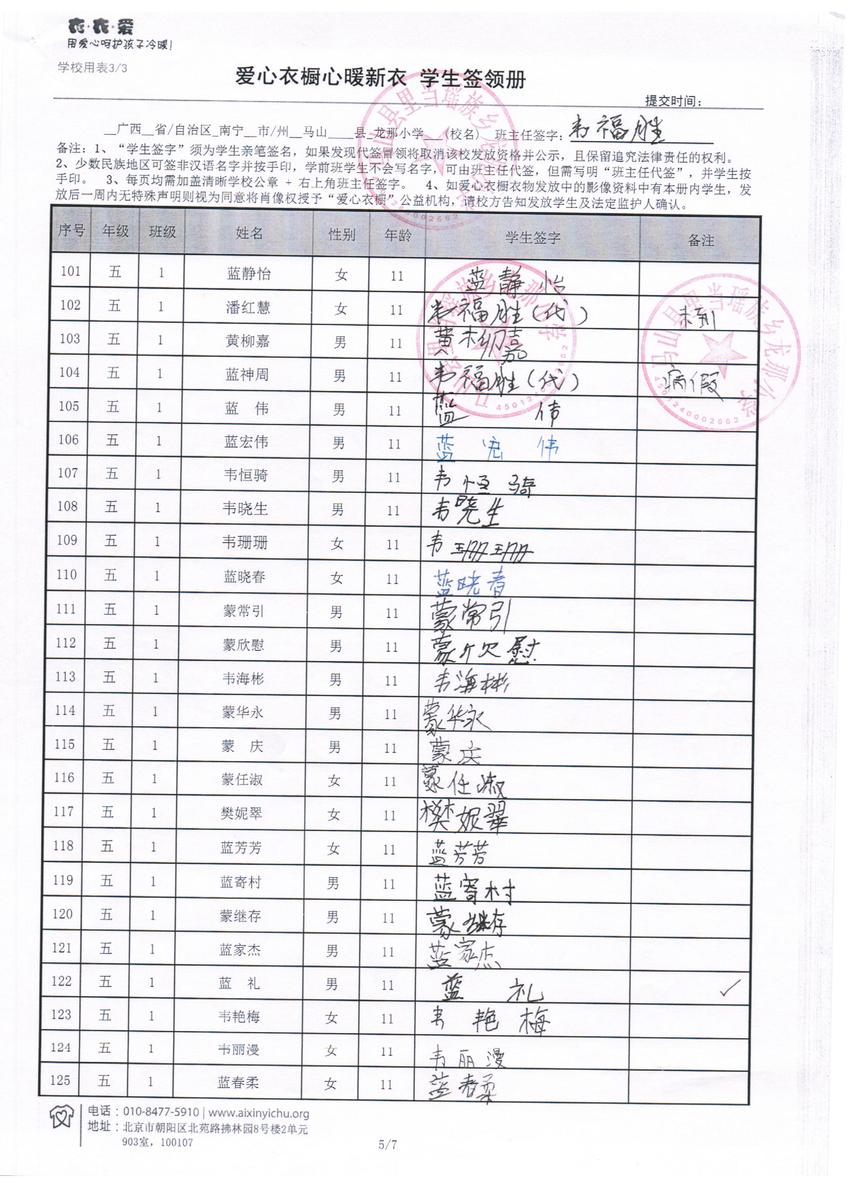 衣·衣·爱
用爱心呵护孩子冷暖!
学校用表3/3
爱心衣橱心暖新衣 学生签领册
提交时间:
__广西__省/自治区_南宁__市/州__马山____县_龙那小学___(校名) 班主任签字: 韦福胜
备注: 1、“学生签字”须为学生亲笔签名,如果发现代签冒领将取消该校发放资格并公示,且保留追究法律责任的权利。
2、少数民族地区可签非汉语名字并按手印,学前班学生不会写名字,可由班主任代签,但需写明“班主任代签”,并学生按
手印。 3、每页均需加盖清晰学校公章 + 右上角班主任签字。 4、如爱心衣橱衣物发放中的影像资料中有本册内学生,发
放后一周内无特殊声明则视为同意将肖像权授予“爱心衣橱”公益机构,请校方告知发放学生及法定监护人确认。
序号 年级 班级 姓名 性别 年龄 学生签字 备注
101 五 1 蓝静怡 女 11 蓝静怡
102 五 1 潘红慧 女 11 韦福胜(代) 未到
103 五 1 黄柳嘉 男 11 黄柳嘉
104 五 1 蓝神周 男 11 韦福胜(代) 病假
105 五 1 蓝 伟 男 11 蓝 伟
106 五 1 蓝宏伟 男 11 蓝宏伟
107 五 1 韦恒骑 男 11 韦恒骑
108 五 1 韦晓生 男 11 韦晓生
109 五 1 韦珊珊 女 11 韦珊珊
110 五 1 蓝晓春 女 11 蓝晓春
111 五 1 蒙常引 男 11 蒙常引
112 五 1 蒙欣慰 男 11 蒙欣慰
113 五 1 韦海彬 男 11 韦海彬
114 五 1 蒙华永 男 11 蒙华永
115 五 1 蒙 庆 男 11 蒙庆
116 五 1 蒙任淑 女 11 蒙任淑
117 五 1 樊妮翠 女 11 樊妮翠
118 五 1 蓝芳芳 女 11 蓝芳芳
119 五 1 蓝寄村 男 11 蓝寄村
120 五 1 蒙继存 男 11 蒙继存
121 五 1 蓝家杰 男 11 蓝家杰
122 五 1 蓝 礼 男 11 蓝 礼 ✓
123 五 1 韦艳梅 女 11 韦艳梅
124 五 1 韦丽漫 女 11 韦丽漫
125 五 1 蓝春柔 女 11 蓝春柔
马山县里当瑶族乡龙那小学
4501240002662
电话: 010-8477-5910 | www.aixinyichu.org
地址: 北京市朝阳区北苑路拂林园8号楼2单元
903室, 100107
5/7